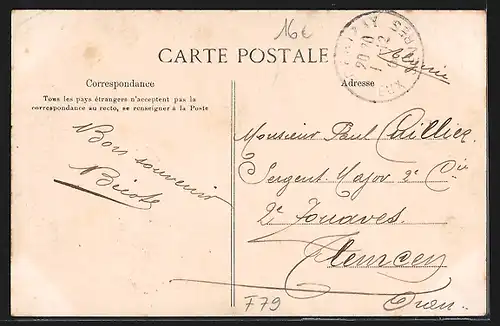 16€
CARTE POSTALE
Correspondance
Tous les pays étrangers n'acceptent pas la
correspondance au recto, se renseigner à la Poste
Bon souvenir
Adresse
Algérie
Monsieur Paul Cuillier
Sergent Major 2e Cie
2e Zouaves
Tlemcen
Oran
F79